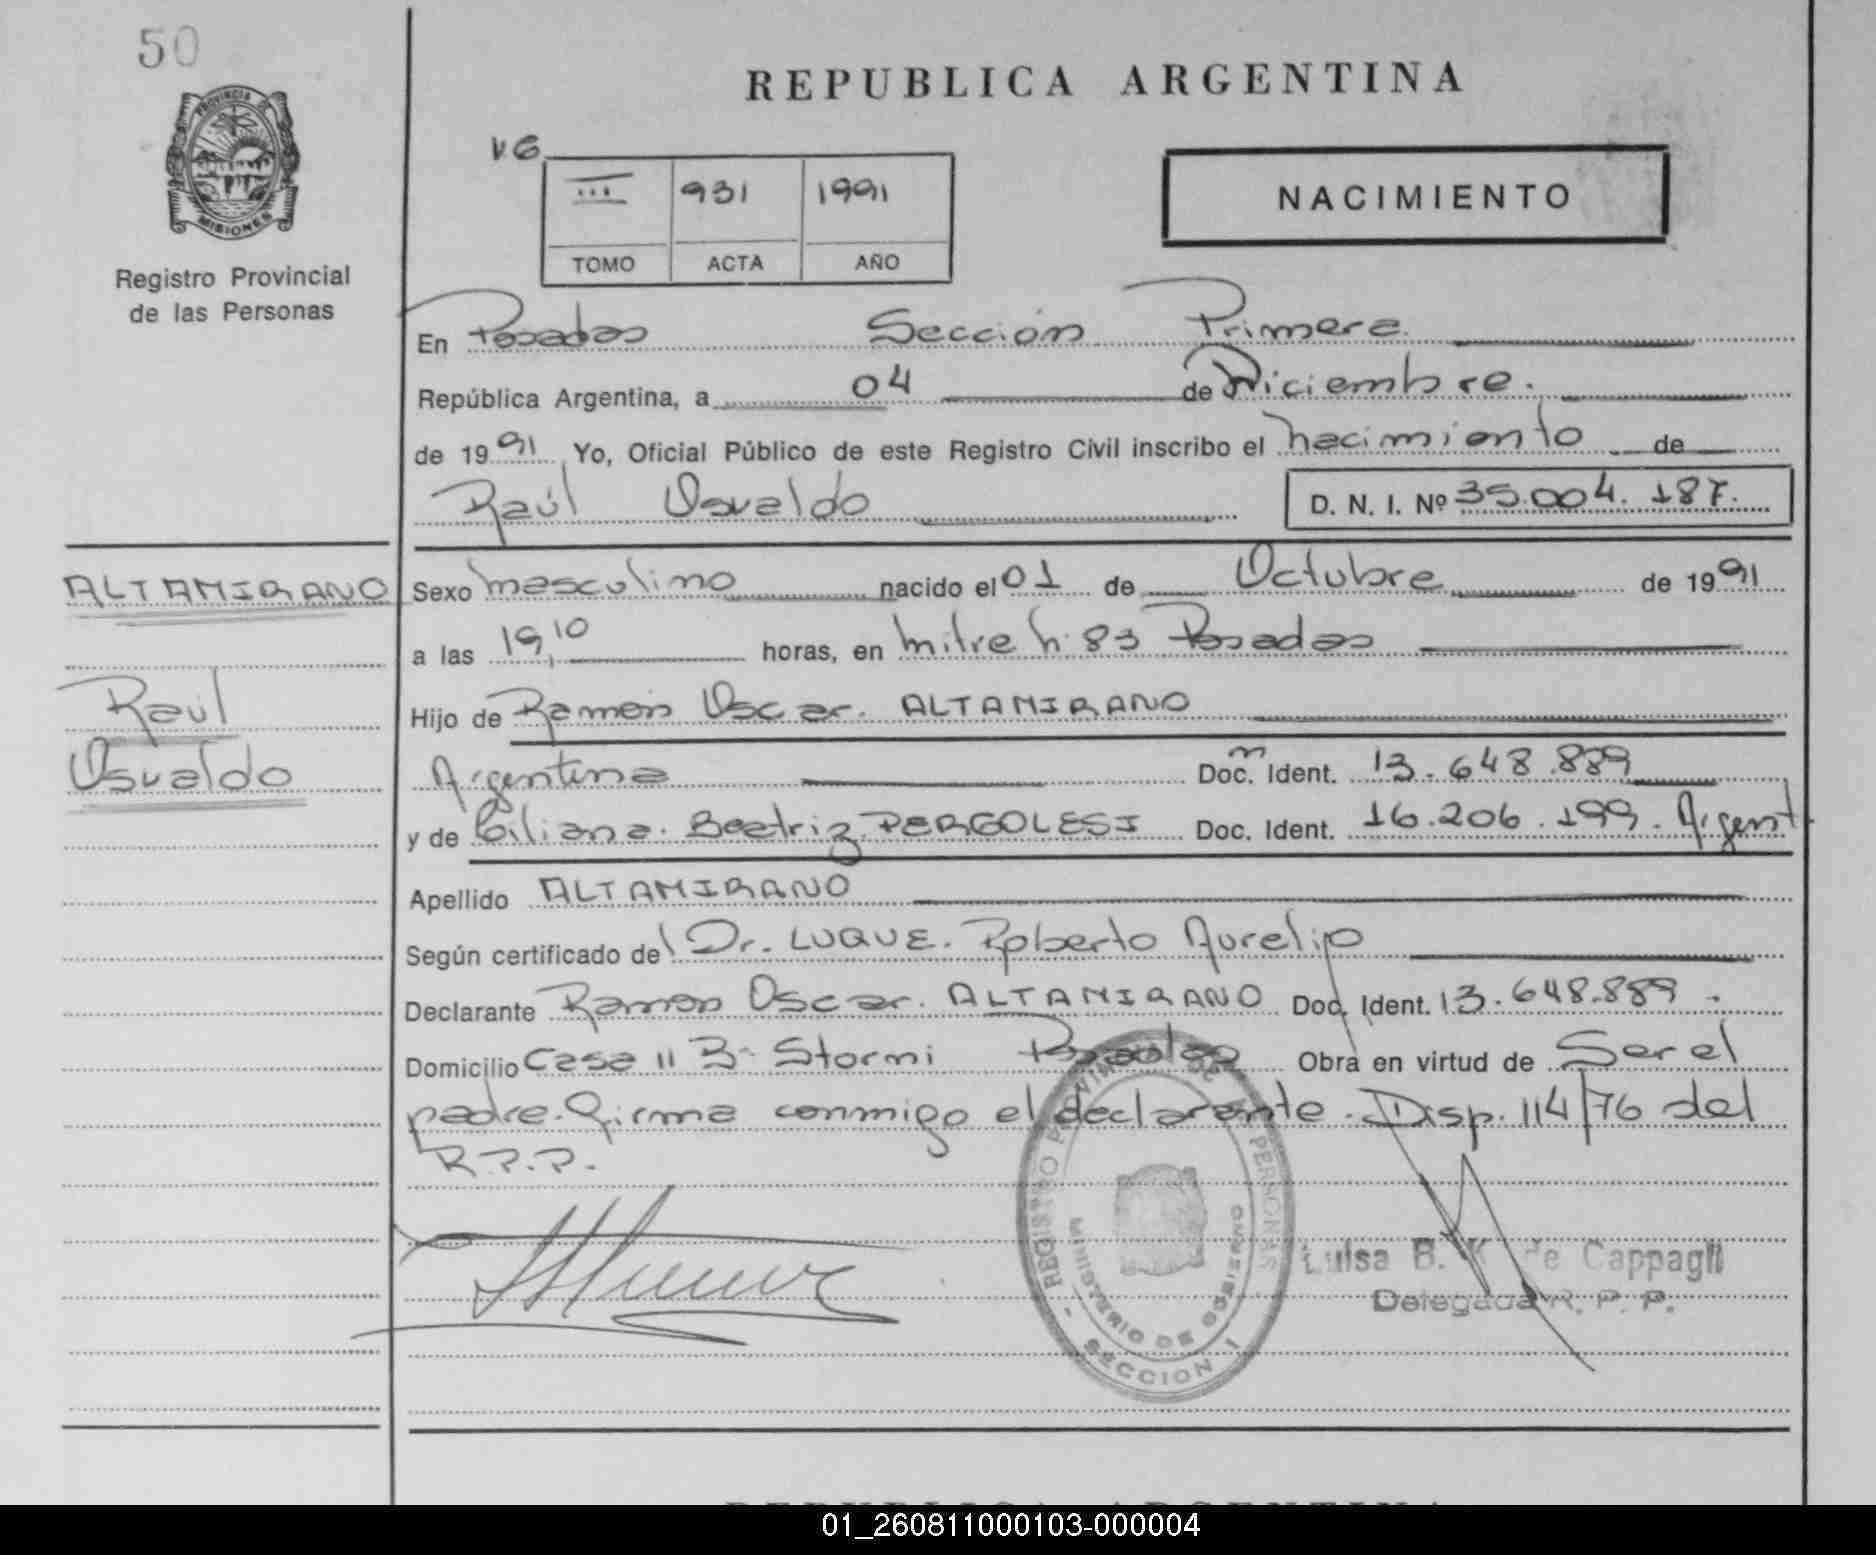 50
REPUBLICA ARGENTINA
PROVINCIA DE
MISIONES
Registro Provincial
de las Personas
V6
III 931 1991
TOMO ACTA AÑO
NACIMIENTO
En Posadas Sección Primera
República Argentina, a 04 de Diciembre.
de 1991 Yo, Oficial Público de este Registro Civil inscribo el nacimiento de
Raúl Osvaldo D. N. I. Nº 35.004.187.
ALTAMIRANO
Raúl
Osvaldo
Sexo masculino nacido el 01 de Octubre de 1991
a las 19,10 horas, en Mitre h. 83 Posadas
Hijo de Ramón Oscar. ALTAMIRANO
Argentina Doc. Ident. 13.648.889
y de Liliana. Beatriz PERGOLESI Doc. Ident. 16.206.199. Argent
Apellido ALTAMIRANO
Según certificado del Dr. LUQUE. Roberto Aurelio
Declarante Ramon Oscar. ALTAMIRANO Doc. Ident. 13.648.889.
Domicilio Casa 11 Bº Storni Posadas Obra en virtud de Ser el
padre. Firma conmigo el declarante. Disp. 114/76 del
R.P.P.
REGISTRO PROVINCIAL DE LAS PERSONAS
MINISTERIO DE GOBIERNO
SECCION 1
Luisa B. K. de Cappagli
Delegada R. P. P.
REPUBLICA ARGENTINA
01_260811000103-000004